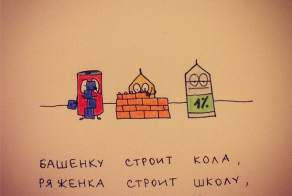 1%
БАШЕНКУ СТРОИТ КОЛА,
РЯЖЕНКА СТРОИТ ШКОЛУ,